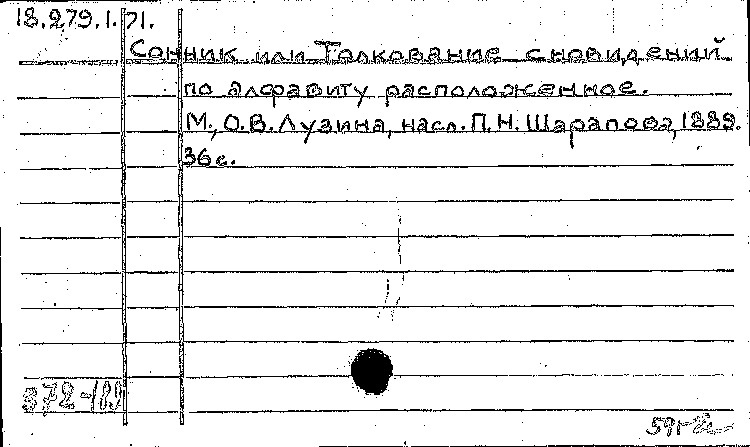 18.279.1.71.
Сонник или Толкование сновидений
по алфавиту расположенное.
М., О.В. Лузина, насл. П.Н. Шарапова, 1889.
36 с.